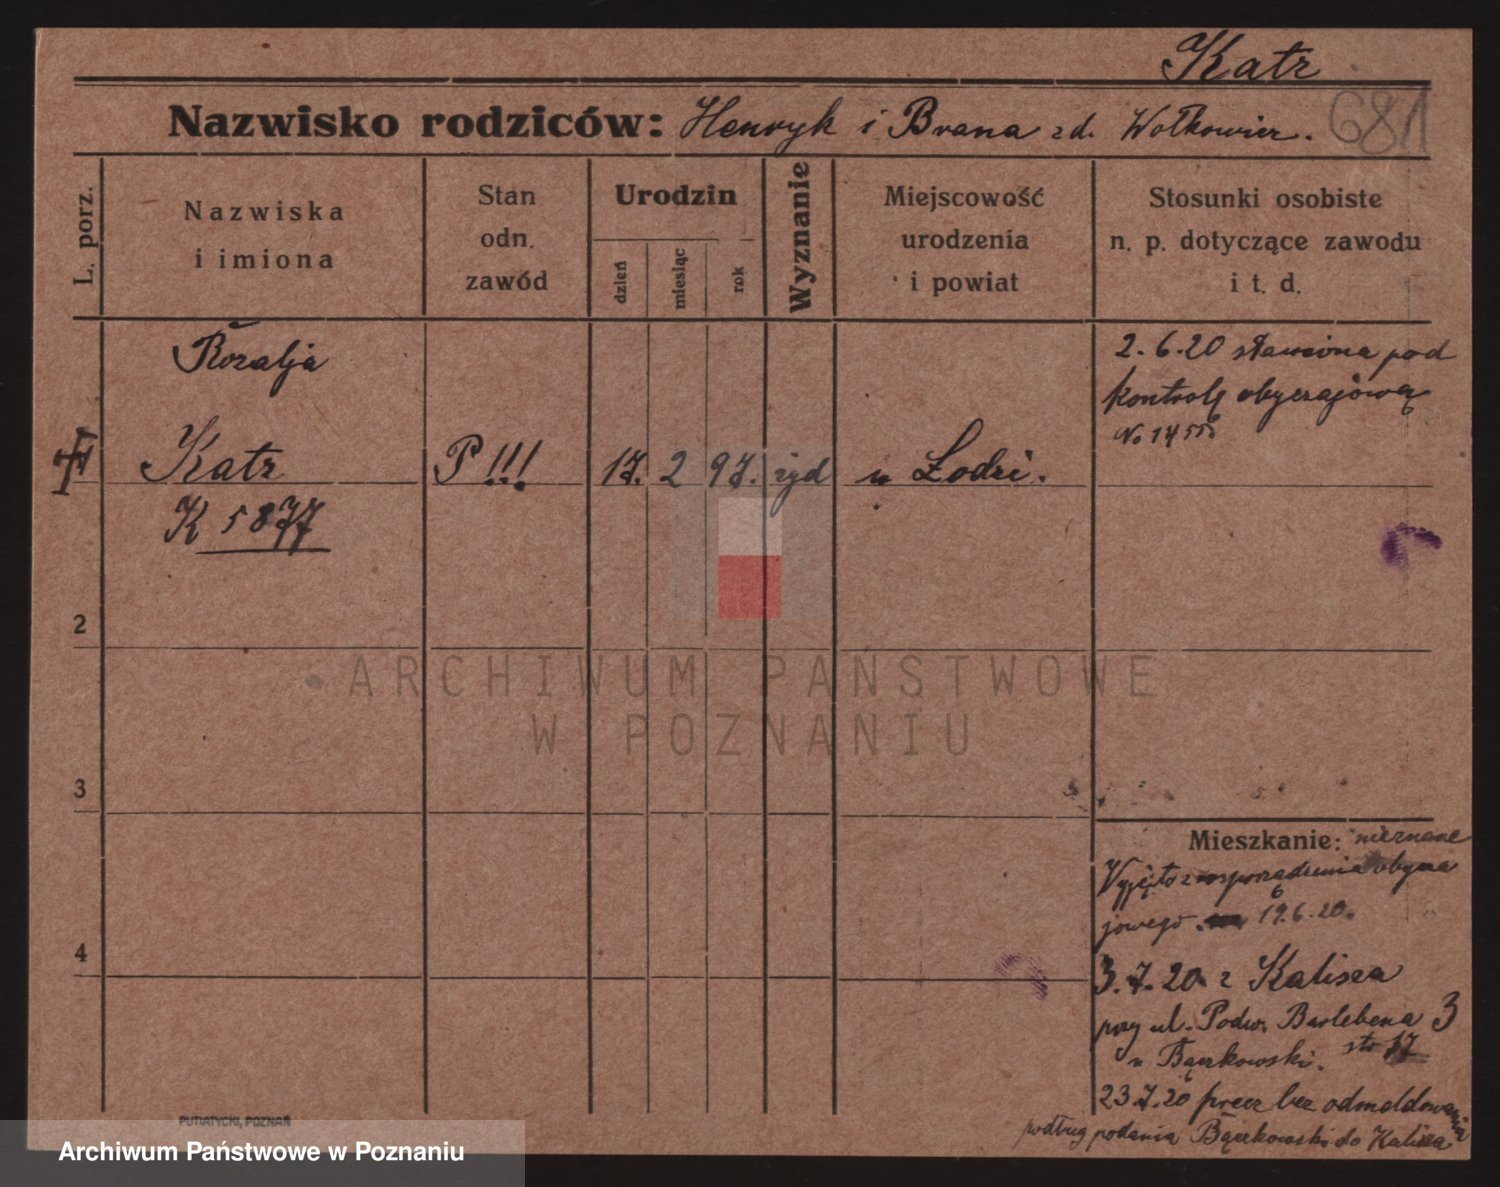 Katz
Nazwisko rodziców: Henryk i Brana zd. Wołkowicz.
681
L. porz.
Nazwiska
i imiona
Stan
odn.
zawód
Urodzin
dzień
miesiąc
rok
Wyznanie
Miejscowość
urodzenia
i powiat
Stosunki osobiste
n. p. dotyczące zawodu
i t. d.
Rozalja
Katz
K 5877
P !!!
17. 2 97. żyd
w Łodzi.
2.6.20 stawiona pod
kontrolę obyczajową
No 1455
2
3
4
Mieszkanie: nieznane
Wyjęto z rozporządzenia obycza
jowego. 19.6.20.
3.7.20 z Kalisza
przy ul. Podw. Barlebena 3
u Bączkowski. sto 17
23.7.20 precz bez odmeldowania
podług podania Bączkowski do Kalisza
PUTIATYCKI, POZNAŃ
ARCHIWUM PAŃSTWOWE
W POZNANIU
Archiwum Państwowe w Poznaniu